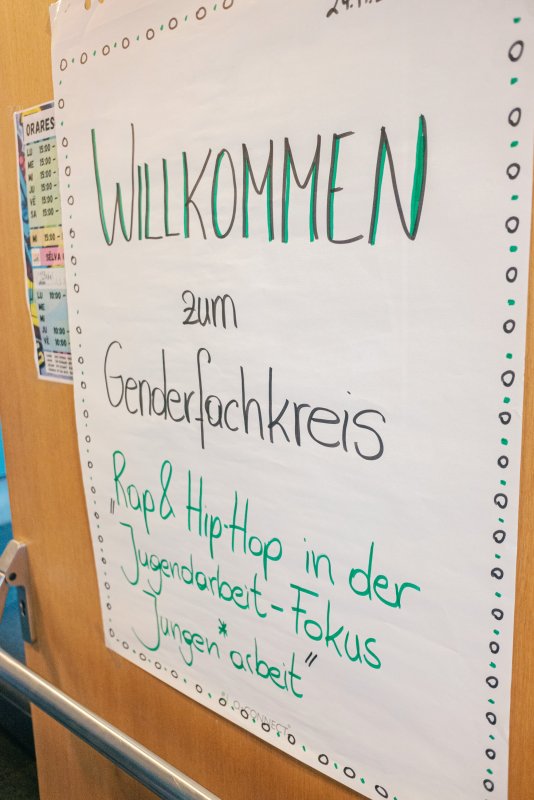 WILLKOMMEN
zum
Genderfachkreis
„Rap & Hip-Hop in der
Jugendarbeit – Fokus
Jungen*arbeit"
ORARES
LU 15:00 -
ME 15:00 -
MI 15:00 -
JU 15:00 -
VË 15:00 -
SA 15:00 -
MI 15:00 -
SËLVA
LU 10:00 -
ME
MI
JU 10:00 -
VË 10:00 -